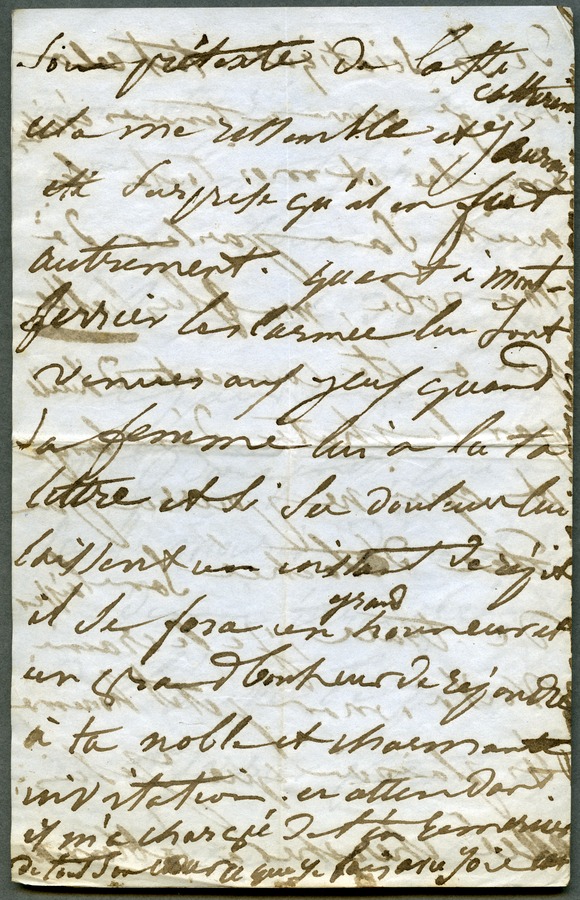 Sous prétexte de la Ste
Catherine
cela me ressemble et j'
aurais
été surprise qu'il en fut
autrement. quant à Mont-
ferrier les larmes lui sont
venues aux yeux quand
sa femme lui a lu ta
lettre et si ses douleurs lui
laissent un instant de répit
il se fera un grand honneur et
un grand bonheur de répondre
à ta noble et charmante
invitation. en attendant
il m'a chargé de t'en remercier
de tout son cœur ce que je fais avec joie